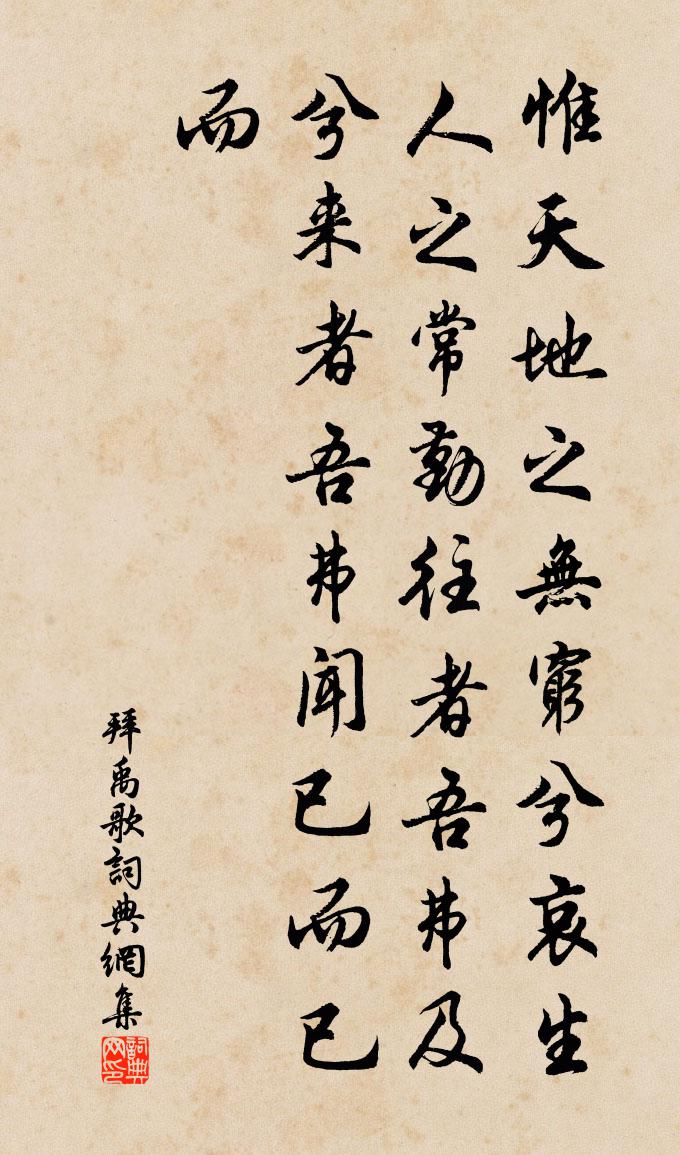 惟天地之無窮兮哀生
人之常勤往者吾弗及
兮来者吾弗闻已而已
而
拜禹歌詞典網集
詞典
网印